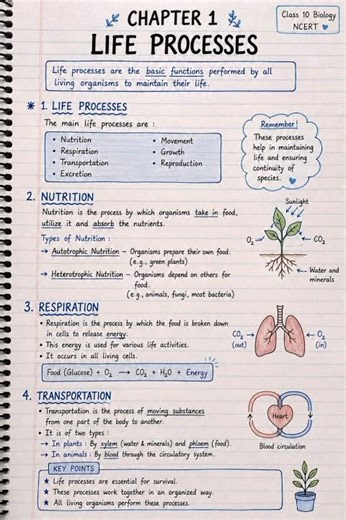 CHAPTER 1
LIFE PROCESSES
Class 10 Biology
NCERT
Life processes are the basic functions performed by all
living organisms to maintain their life.
1. LIFE PROCESSES
The main life processes are :
• Nutrition
• Respiration
• Transportation
• Excretion
• Movement
• Growth
• Reproduction
Remember!
These processes
help in maintaining
life and ensuring
continuity of
species.
2. NUTRITION
Nutrition is the process by which organisms take in food,
utilize it and absorb the nutrients.
Types of Nutrition :
→ Autotrophic Nutrition – Organisms prepare their own food.
(e.g., green plants)
→ Heterotrophic Nutrition – Organisms depend on others for
food.
(e.g., animals, fungi, most bacteria)
Sunlight
O₂
CO₂
Water and
minerals
3. RESPIRATION
• Respiration is the process by which the food is broken down
in cells to release energy.
• This energy is used for various life activities.
• It occurs in all living cells.
Food (Glucose) + O₂ → CO₂ + H₂O + Energy
CO₂
(out)
O₂
(in)
4. TRANSPORTATION
• Transportation is the process of moving substances
from one part of the body to another.
• It is of two types :
→ In plants : By xylem (water & minerals) and phloem (food).
→ In animals : By blood through the circulatory system.
Heart
Blood circulation
KEY POINTS
★ Life processes are essential for survival.
★ These processes work together in an organized way.
★ All living organisms perform these processes.